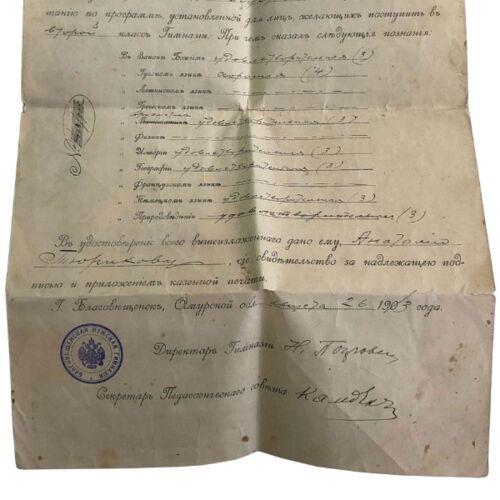 танію по программѣ, установленной для лицъ, желающихъ поступить въ
второй классъ Гимназіи. При чемъ оказалъ слѣдующія познанія:
Въ Законѣ Божіемъ удовлетворительныя (3)
„ Русскомъ языкѣ хорошія (4)
„ Латинскомъ языкѣ —
„ Греческомъ языкѣ —
„ Математикѣ удовлетворительныя (3)
„ Физикѣ —
„ Исторіи удовлетворительныя (3)
„ Географіи удовлетворительныя (3)
„ Французскомъ языкѣ —
„ Нѣмецкомъ языкѣ удовлетворительныя (3)
„ Природовѣдѣніи удовлетворительныя (3)
Въ удостовѣреніе всего вышеизложеннаго дано ему, Анатолію
сіе свидѣтельство за надлежащею под-
писью и приложеніемъ казенной печати.
Г. Благовѣщенскъ, Амурской обл. августа 26 19 3 года.
Директоръ Гимназіи Н.
Секретарь Педагогическаго совѣта
БЛАГОВѢЩЕНСКАЯ МУЖСКАЯ ГИМНАЗІЯ